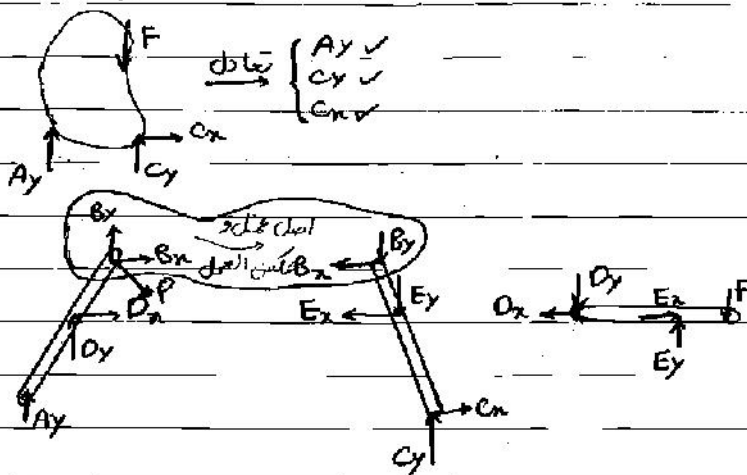 F
تعادل
Ay ✓
Cy ✓
Cx ✓
Cx
Ay
Cy
By
اصل عمل و
عکس العمل
Bx
P
Dx
Dy
Ay
By
Bx
Ey
Ex
Cx
Cy
Dy
Dx
Ex
F
Ey